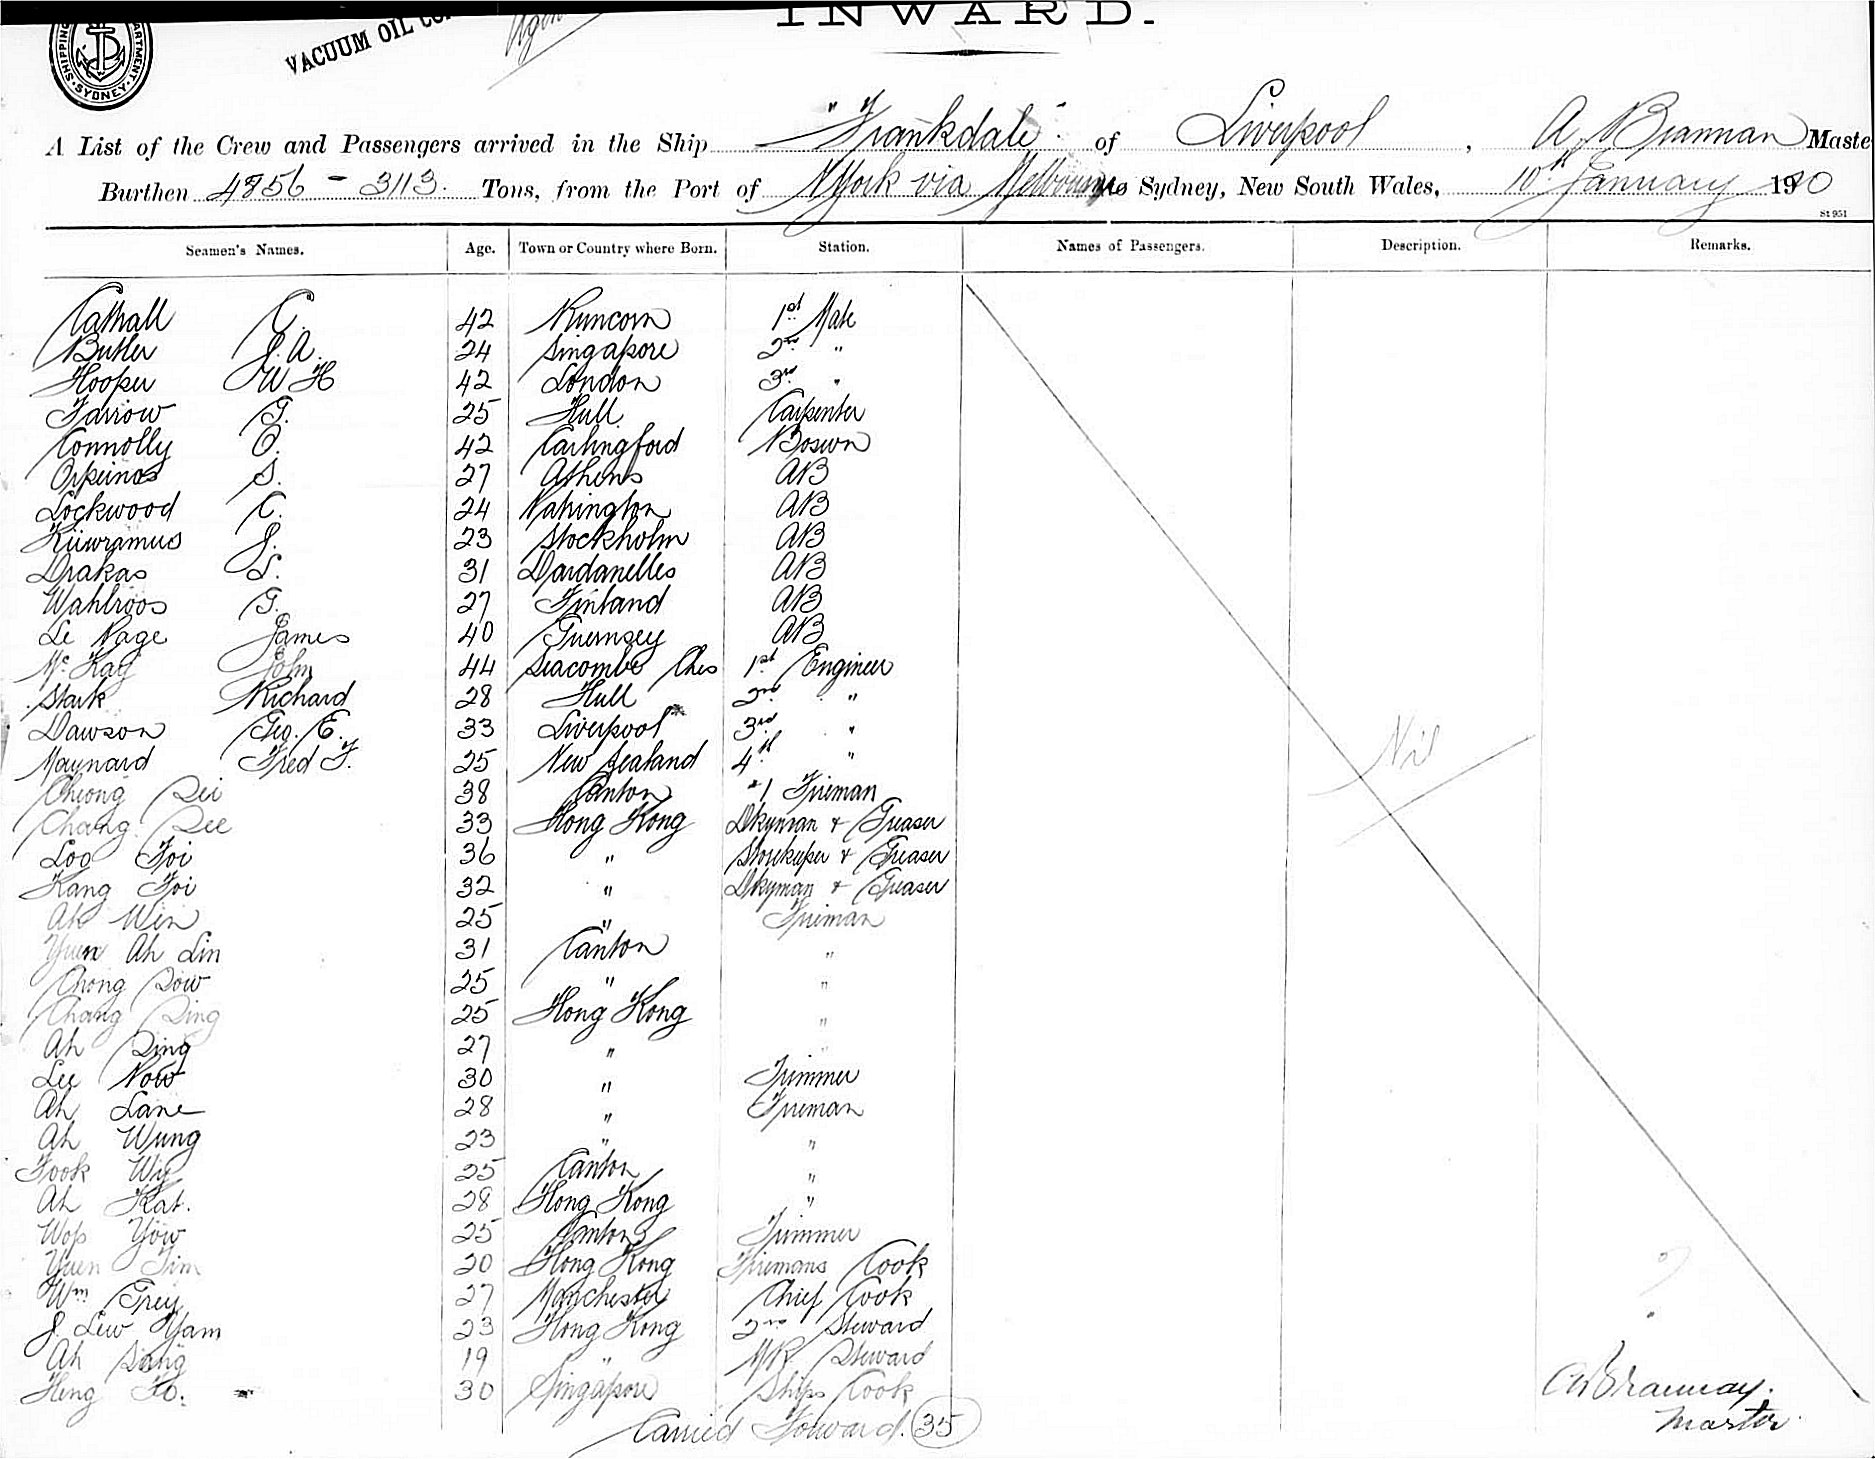 INWARD.
SHIPPING DEPARTMENT. SYDNEY.
VACUUM OIL CO
A List of the Crew and Passengers arrived in the Ship "Frankdale" of Liverpool, A Brannan Maste
Burthen 4856 - 3113. Tons, from the Port of NYork via Melbourne to Sydney, New South Wales, 10th January 1920
St 951
Seamen's Names. Age. Town or Country where Born. Station. Names of Passengers. Description. Remarks.
Cathall C. 42 Runcorn 1st Mate
Butler J. A. 24 Singapore 2nd "
Hooper W H 42 London 3rd "
Farrow G. 25 Hull Carpenter
Connolly O. 42 Carlingford Boswn
S. 27 Athens AB
Lockwood C. 24 AB
J. 23 Stockholm AB
Drakas S. 31 Dardanelles AB
Wahlroos G. 27 Finland AB
Le Page James 40 Guernsey AB
Mc Kay John 44 Seacombe Ches 1st Engineer
Stark Richard 28 Hull 2nd "
Dawson Geo. E. 33 Liverpool 3rd "
Maynard Fred F. 25 New Zealand 4th "
Cheong Sei 38 Canton #1 Fireman
Chang See 33 Hong Kong Dkyman & Greaser
Loo Foi 36 " Storekeeper & Greaser
Kang Foi 32 " Dkyman & Greaser
Ah Win 25 " Fireman
Yuen Ah Lin 31 Canton "
Chong Sow 25 " "
Chang Sing 25 Hong Kong "
Ah Sing 27 " "
Lee Now 30 " Trimmer
Ah Lane 28 " Fireman
Ah Wung 23 " "
Fook Wy 25 Canton "
Ah Kat. 28 Hong Kong "
Wop Yow 25 Canton Trimmer
Yuen Tim 20 Hong Kong Firemans Cook
Wm Grey 27 Manchester Chief Cook
J. Lew Yam 23 Hong Kong 2nd Steward
Ah Sang 19 " MR Steward
Heng Fo. 30 Singapore Ships Cook
Carried Forward. 35
Nil
Master